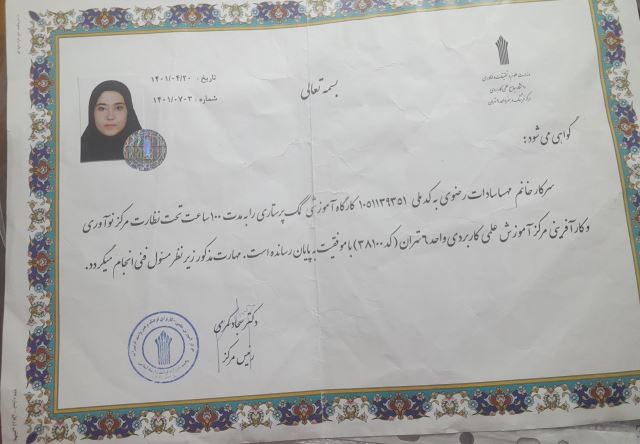 وزارت علوم، تحقیقات و فناوری
دانشگاه جامع علمی کاربردی
بسمه تعالی
تاریخ : ۱۴۰۱/۰۴/۲۰
شماره : ۱۴۰۱/۰۷۰۳
گواهی می شود :
سرکار خانم مهسا سادات رضوی به کد ملی ۱۰۵۱۱۳۹۳۵۱ کارگاه آموزشی کمک پرستاری را به مدت ۱۰۰ ساعت تحت نظارت مرکز نوآوری
و کارآفرینی مرکز آموزش علمی کاربردی واحد ۶ تهران (کد ۳۸۱۰۰) با موفقیت به پایان رسانده است. مهارت مذکور زیر نظر مسئول فنی انجام میگردد.
دکتر سجاد کمری
رئیس مرکز